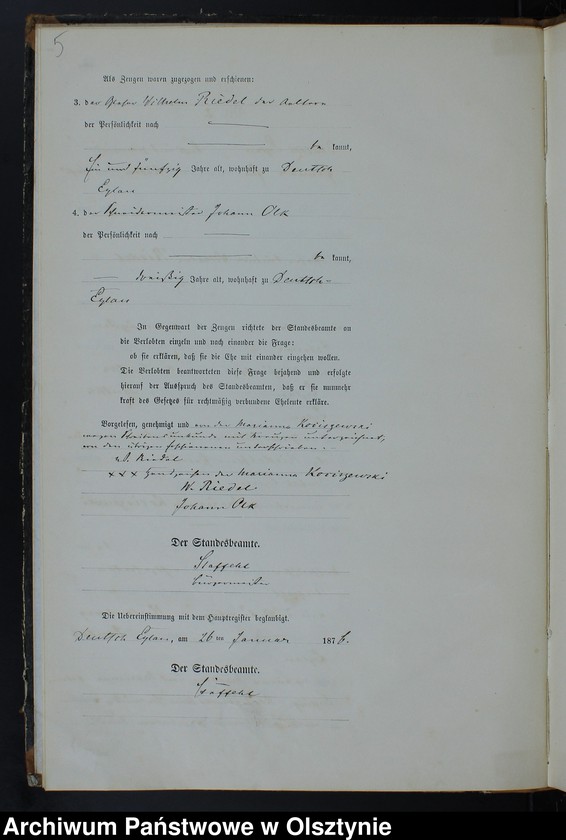 5
Als Zeugen waren zugezogen und erschienen:
3. der Wilhelm Riedel der
der Persönlichkeit nach
be kannt,
Ein und fünfzig Jahre alt, wohnhaft zu Deutsch
Eylau
4. der Schneidermeister Johann Olk
der Persönlichkeit nach
be kannt,
dreißig Jahre alt, wohnhaft zu Deutsch-
Eylau
In Gegenwart der Zeugen richtete der Standesbeamte an
die Verlobten einzeln und nach einander die Frage:
ob sie erklären, daß sie die Ehe mit einander eingehen wollen.
Die Verlobten beantworteten diese Frage bejahend und erfolgte
hierauf der Ausspruch des Standesbeamten, daß er sie nunmehr
kraft des Gesetzes für rechtmäßig verbundene Eheleute erkläre.
Vorgelesen, genehmigt und von der Marianna Kociszewski
wegen Schreibensunkunde mit Kreuzen unterzeichnet,
von den übrigen Erschienenen unterschrieben:
Riedel
××× Handzeichen der Marianna Kociszewski
W. Riedel
Johann Olk
Der Standesbeamte.
Bürgermeister
Die Uebereinstimmung mit dem Hauptregister beglaubigt.
Deutsch Eylau, am 26ten Januar 1876.
Der Standesbeamte.
Archiwum Państwowe w Olsztynie